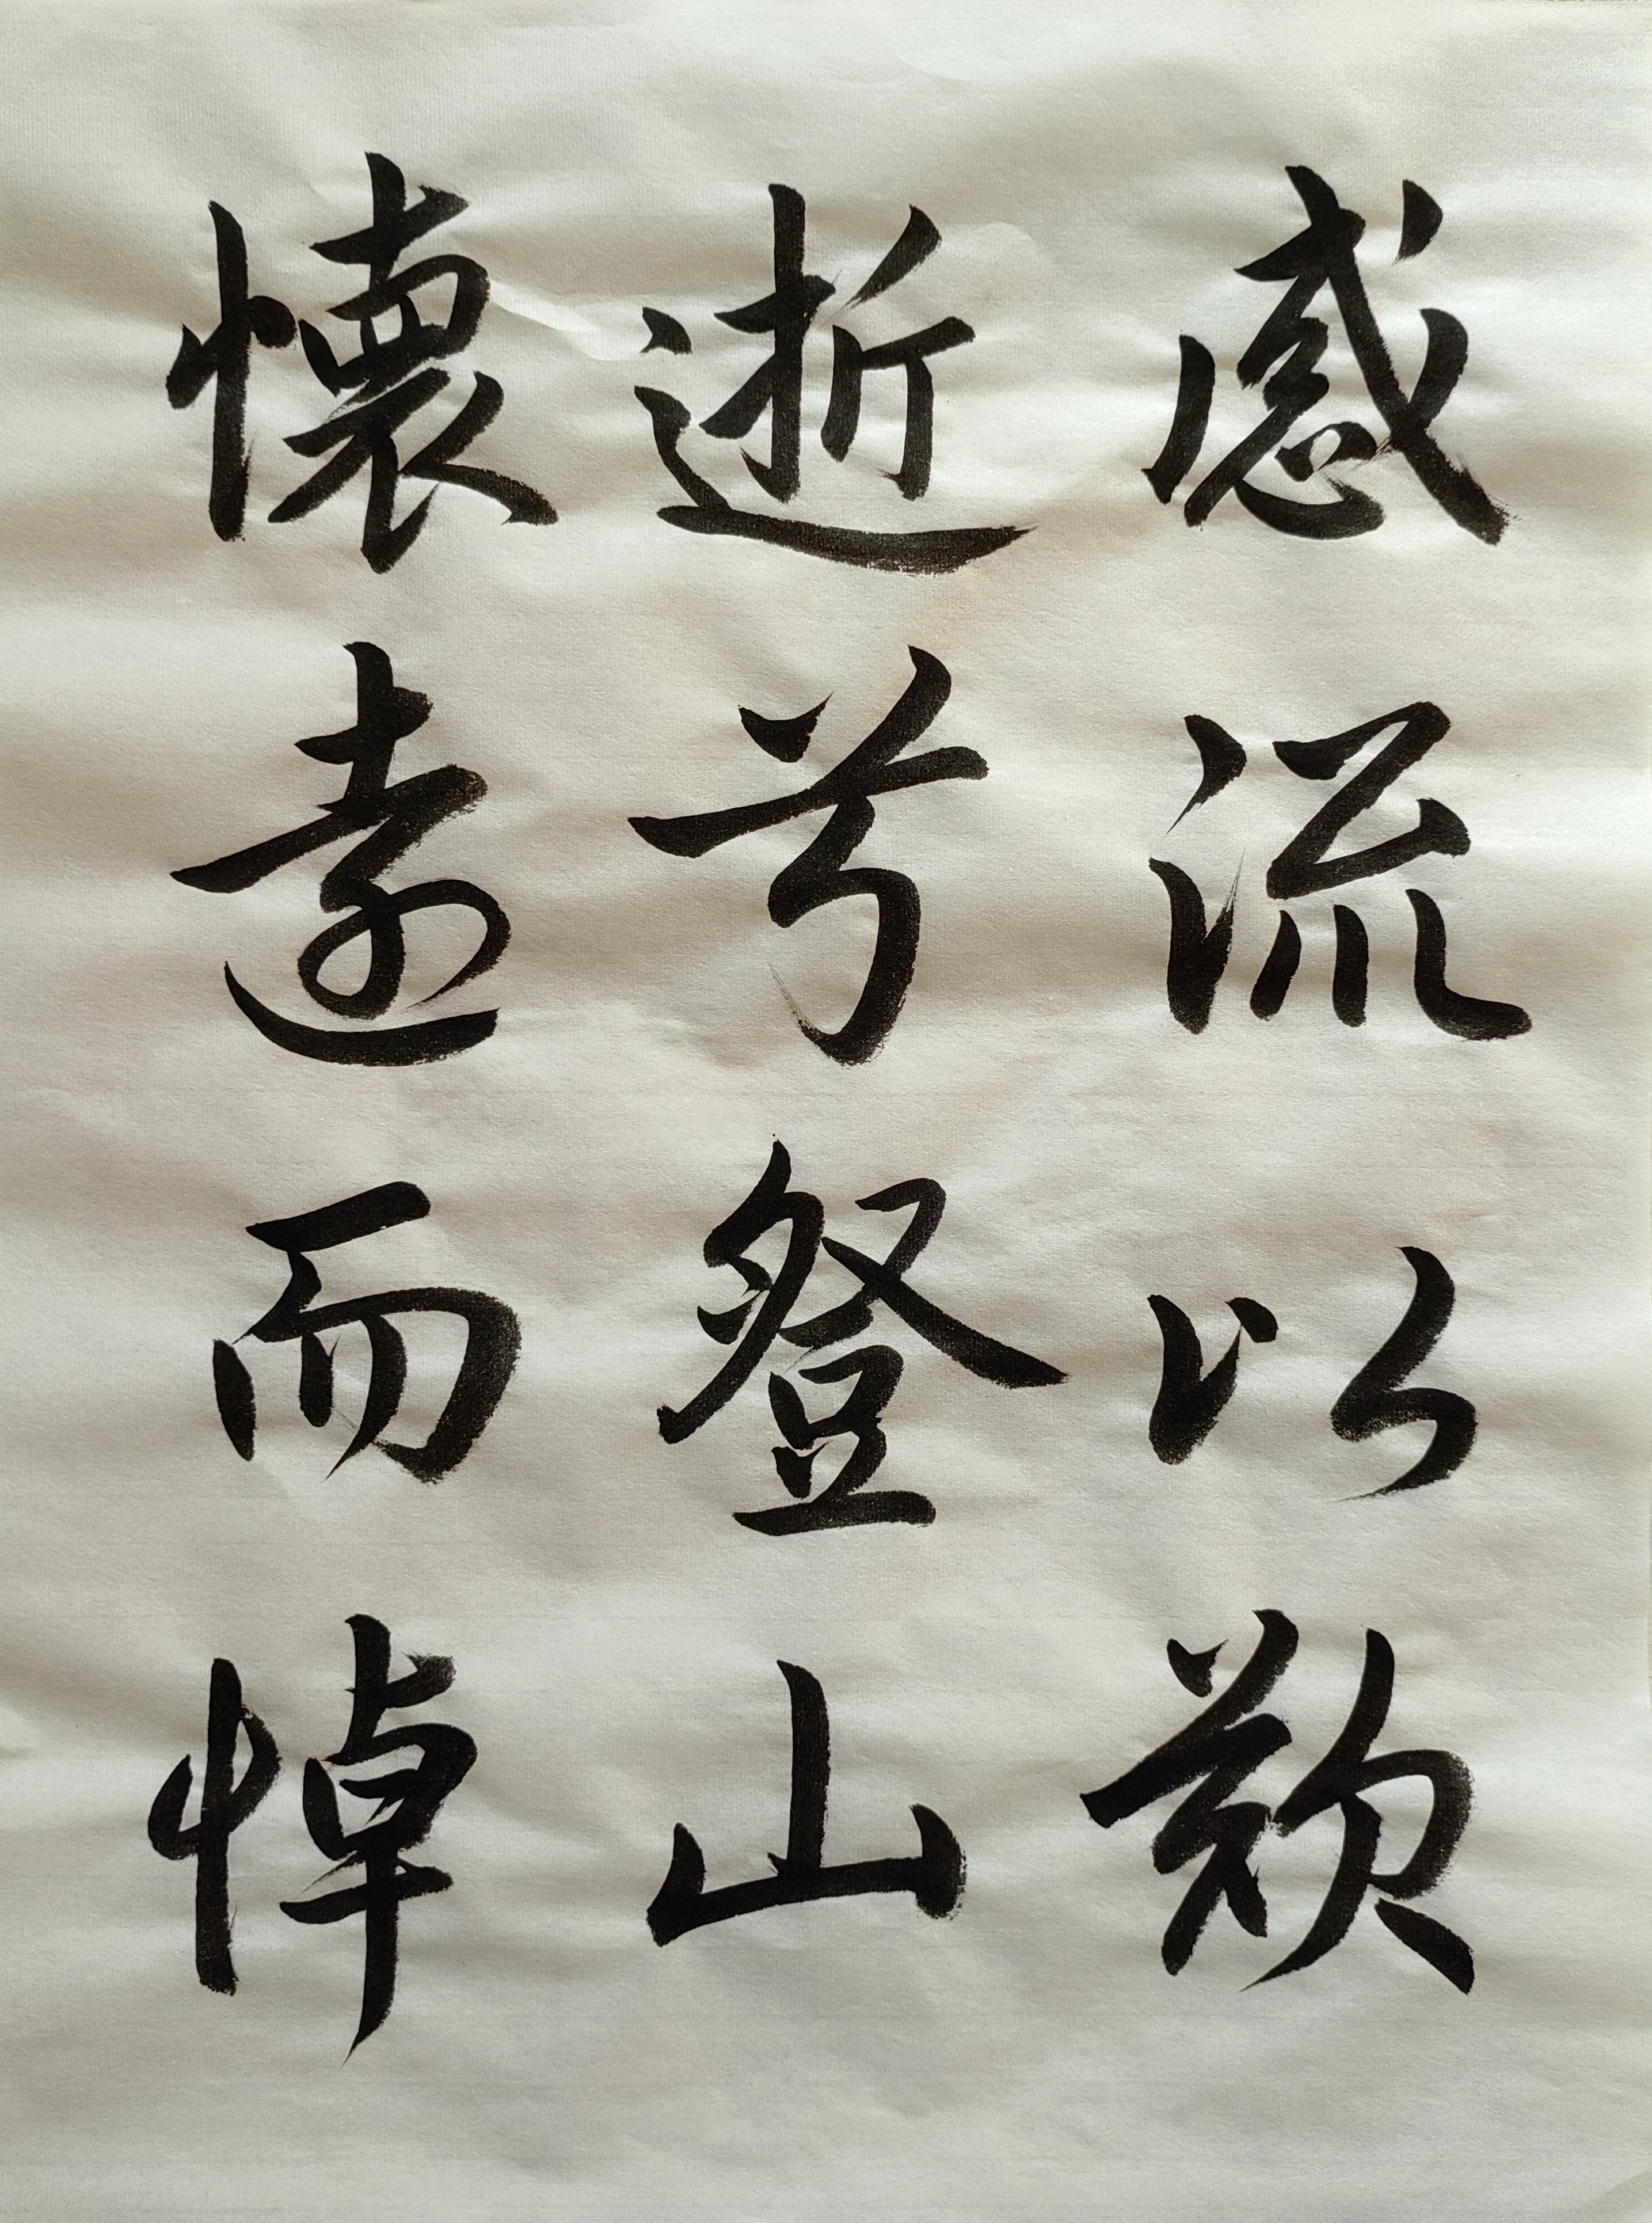 感流以歎
逝兮登山
懷遠而悼